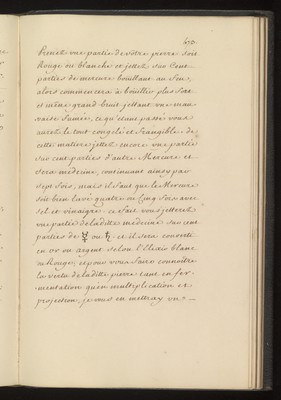 Prenés vne partie de vôtre pierre soit
Rouge ou blanche et jettés sur Cent
parties de mercure boüillant au feu,
alors commencera à boüillir plus fort
et même grand bruit jettant vne mau-
vaise fumée, ce qu'etant passé vous
aurés le tout congelé et frangible. de
cette matiere jettés encore vne partie
sur cent parties d'autre Mercure et
sera medecine, continuant ainsy par
sept fois, mais il faut que le Mercure
soit bien lavé quatre ou Cinq fois avec
sel et vinaigre. ce fait vous jetterés
vne partie de ladite medecine sur cent
parties de ☿ ou ♄. et il sera converti
en or ou argent selon l'Elixir blanc
ou Rouge, et pour vous faire connoître
la vertu de ladite pierre tant en fer-
mentation qu'en multiplication et
projection, je vous en mettray vn